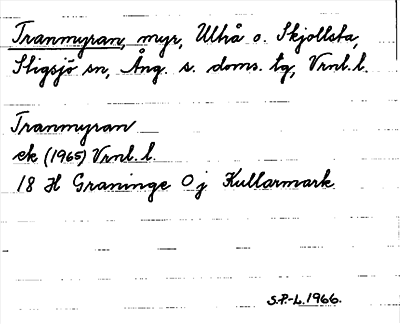 Tranmyran, myr, Utrå o. Skjollsta,
Stigsjö sn, Ång. s. doms. tg, Vrnl. l.
Tranmyran
ek (1965) Vrnl. l.
18 H Graninge O j Kullarmark
S.P.-L. 1966.